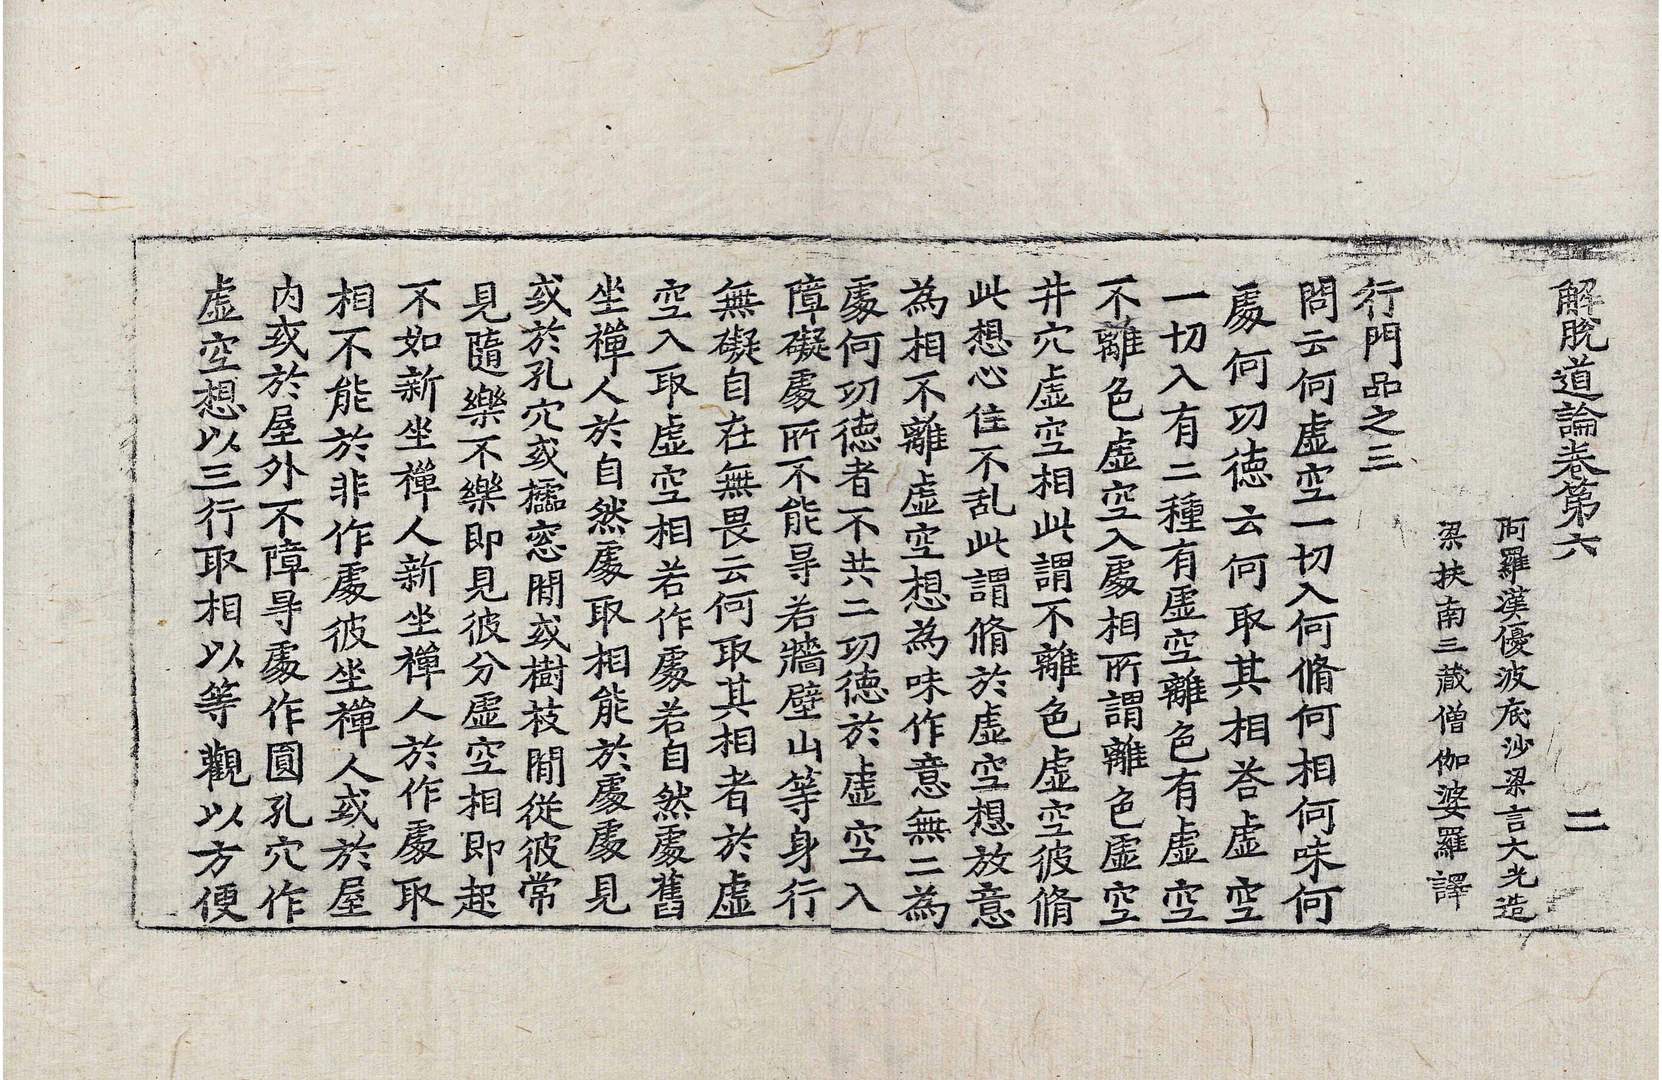 解脫道論卷第六　二
阿羅漢優波底沙梁言大光造
梁扶南三藏僧伽婆羅譯
行門品之三
問云何虛空一切入何脩何相何味何
處何功德云何取其相答虛空
一切入有二種有虛空離色有虛空
不離色虛空入處相所謂離色虛空
井穴虛空相此謂不離色虛空彼脩
此想心住不乱此謂脩於虛空想放意
為相不離虛空想為味作意無二為
處何功德者不共二功德於虛空入
障礙處所不能㝵若牆壁山等身行
無礙自在無畏云何取其相者於虛
空入取虛空相若作處若自然處舊
坐禪人於自然處取相能於處處見
或於孔穴或櫺窓間或樹枝間從彼常
見隨樂不樂即見彼分虛空相即起
不如新坐禪人新坐禪人於作處取
相不能於非作處彼坐禪人或於屋
內或於屋外不障㝵處作圓孔穴作
虛空想以三行取相以等觀以方便